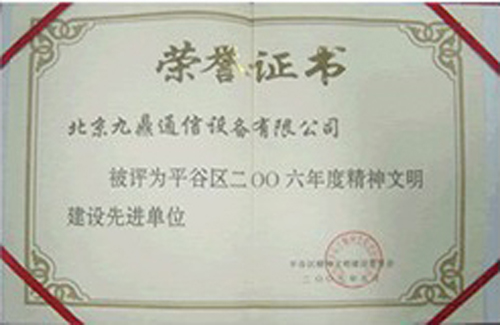 荣誉证书
北京九鼎通信设备有限公司
被评为平谷区二〇〇六年度精神文明
建设先进单位
平谷区精神文明建设委员会